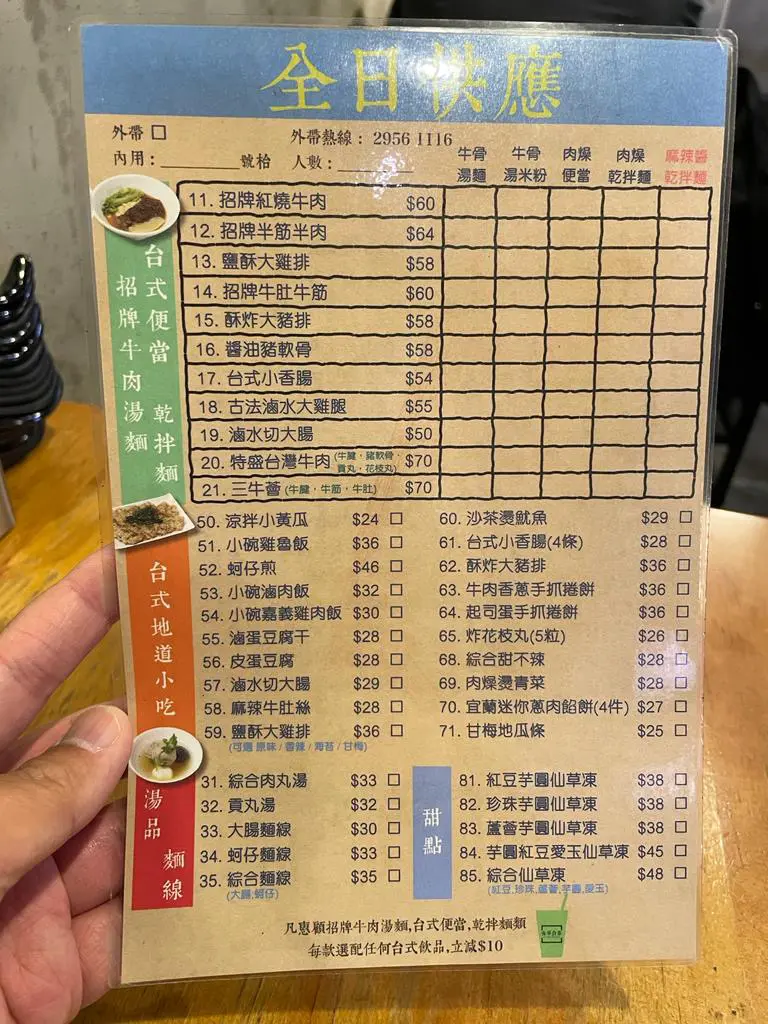 全日供應
外帶 □ 外帶熱線：2956 1116
內用：________號枱 人數：________
牛骨湯麵 牛骨湯米粉 肉燥便當 肉燥乾拌麵 麻辣醬乾拌麵
招牌牛肉湯麵 台式便當 乾拌麵
11. 招牌紅燒牛肉 $60
12. 招牌半筋半肉 $64
13. 鹽酥大雞排 $58
14. 招牌牛肚牛筋 $60
15. 酥炸大豬排 $58
16. 醬油豬軟骨 $58
17. 台式小香腸 $54
18. 古法滷水大雞腿 $55
19. 滷水切大腸 $50
20. 特盛台灣牛肉 (牛腱，豬軟骨，貢丸，花枝丸) $70
21. 三牛薈 (牛腱，牛筋，牛肚) $70
台式地道小吃
50. 涼拌小黃瓜 $24 □
51. 小碗雞魯飯 $36 □
52. 蚵仔煎 $46 □
53. 小碗滷肉飯 $32 □
54. 小碗嘉義雞肉飯 $30 □
55. 滷蛋豆腐干 $28 □
56. 皮蛋豆腐 $28 □
57. 滷水切大腸 $29 □
58. 麻辣牛肚絲 $28 □
59. 鹽酥大雞排 $36 □
(可選 原味 / 香辣 / 海苔 / 甘梅)
60. 沙茶燙魷魚 $29 □
61. 台式小香腸(4條) $28 □
62. 酥炸大豬排 $36 □
63. 牛肉香蔥手抓捲餅 $36 □
64. 起司蛋手抓捲餅 $36 □
65. 炸花枝丸(5粒) $26 □
68. 綜合甜不辣 $28 □
69. 肉燥燙青菜 $28 □
70. 宜蘭迷你蔥肉餡餅(4件) $27 □
71. 甘梅地瓜條 $25 □
湯品 麵線
31. 綜合肉丸湯 $33 □
32. 貢丸湯 $32 □
33. 大腸麵線 $30 □
34. 蚵仔麵線 $33 □
35. 綜合麵線 $35 □
(大腸,蚵仔)
甜點
81. 紅豆芋圓仙草凍 $38 □
82. 珍珠芋圓仙草凍 $38 □
83. 蘆薈芋圓仙草凍 $38 □
84. 芋圓紅豆愛玉仙草凍 $45 □
85. 綜合仙草凍 $48 □
(紅豆,珍珠,蘆薈,芋圓,愛玉)
凡惠顧招牌牛肉湯麵,台式便當,乾拌麵類
每款選配任何台式飲品,立減$10